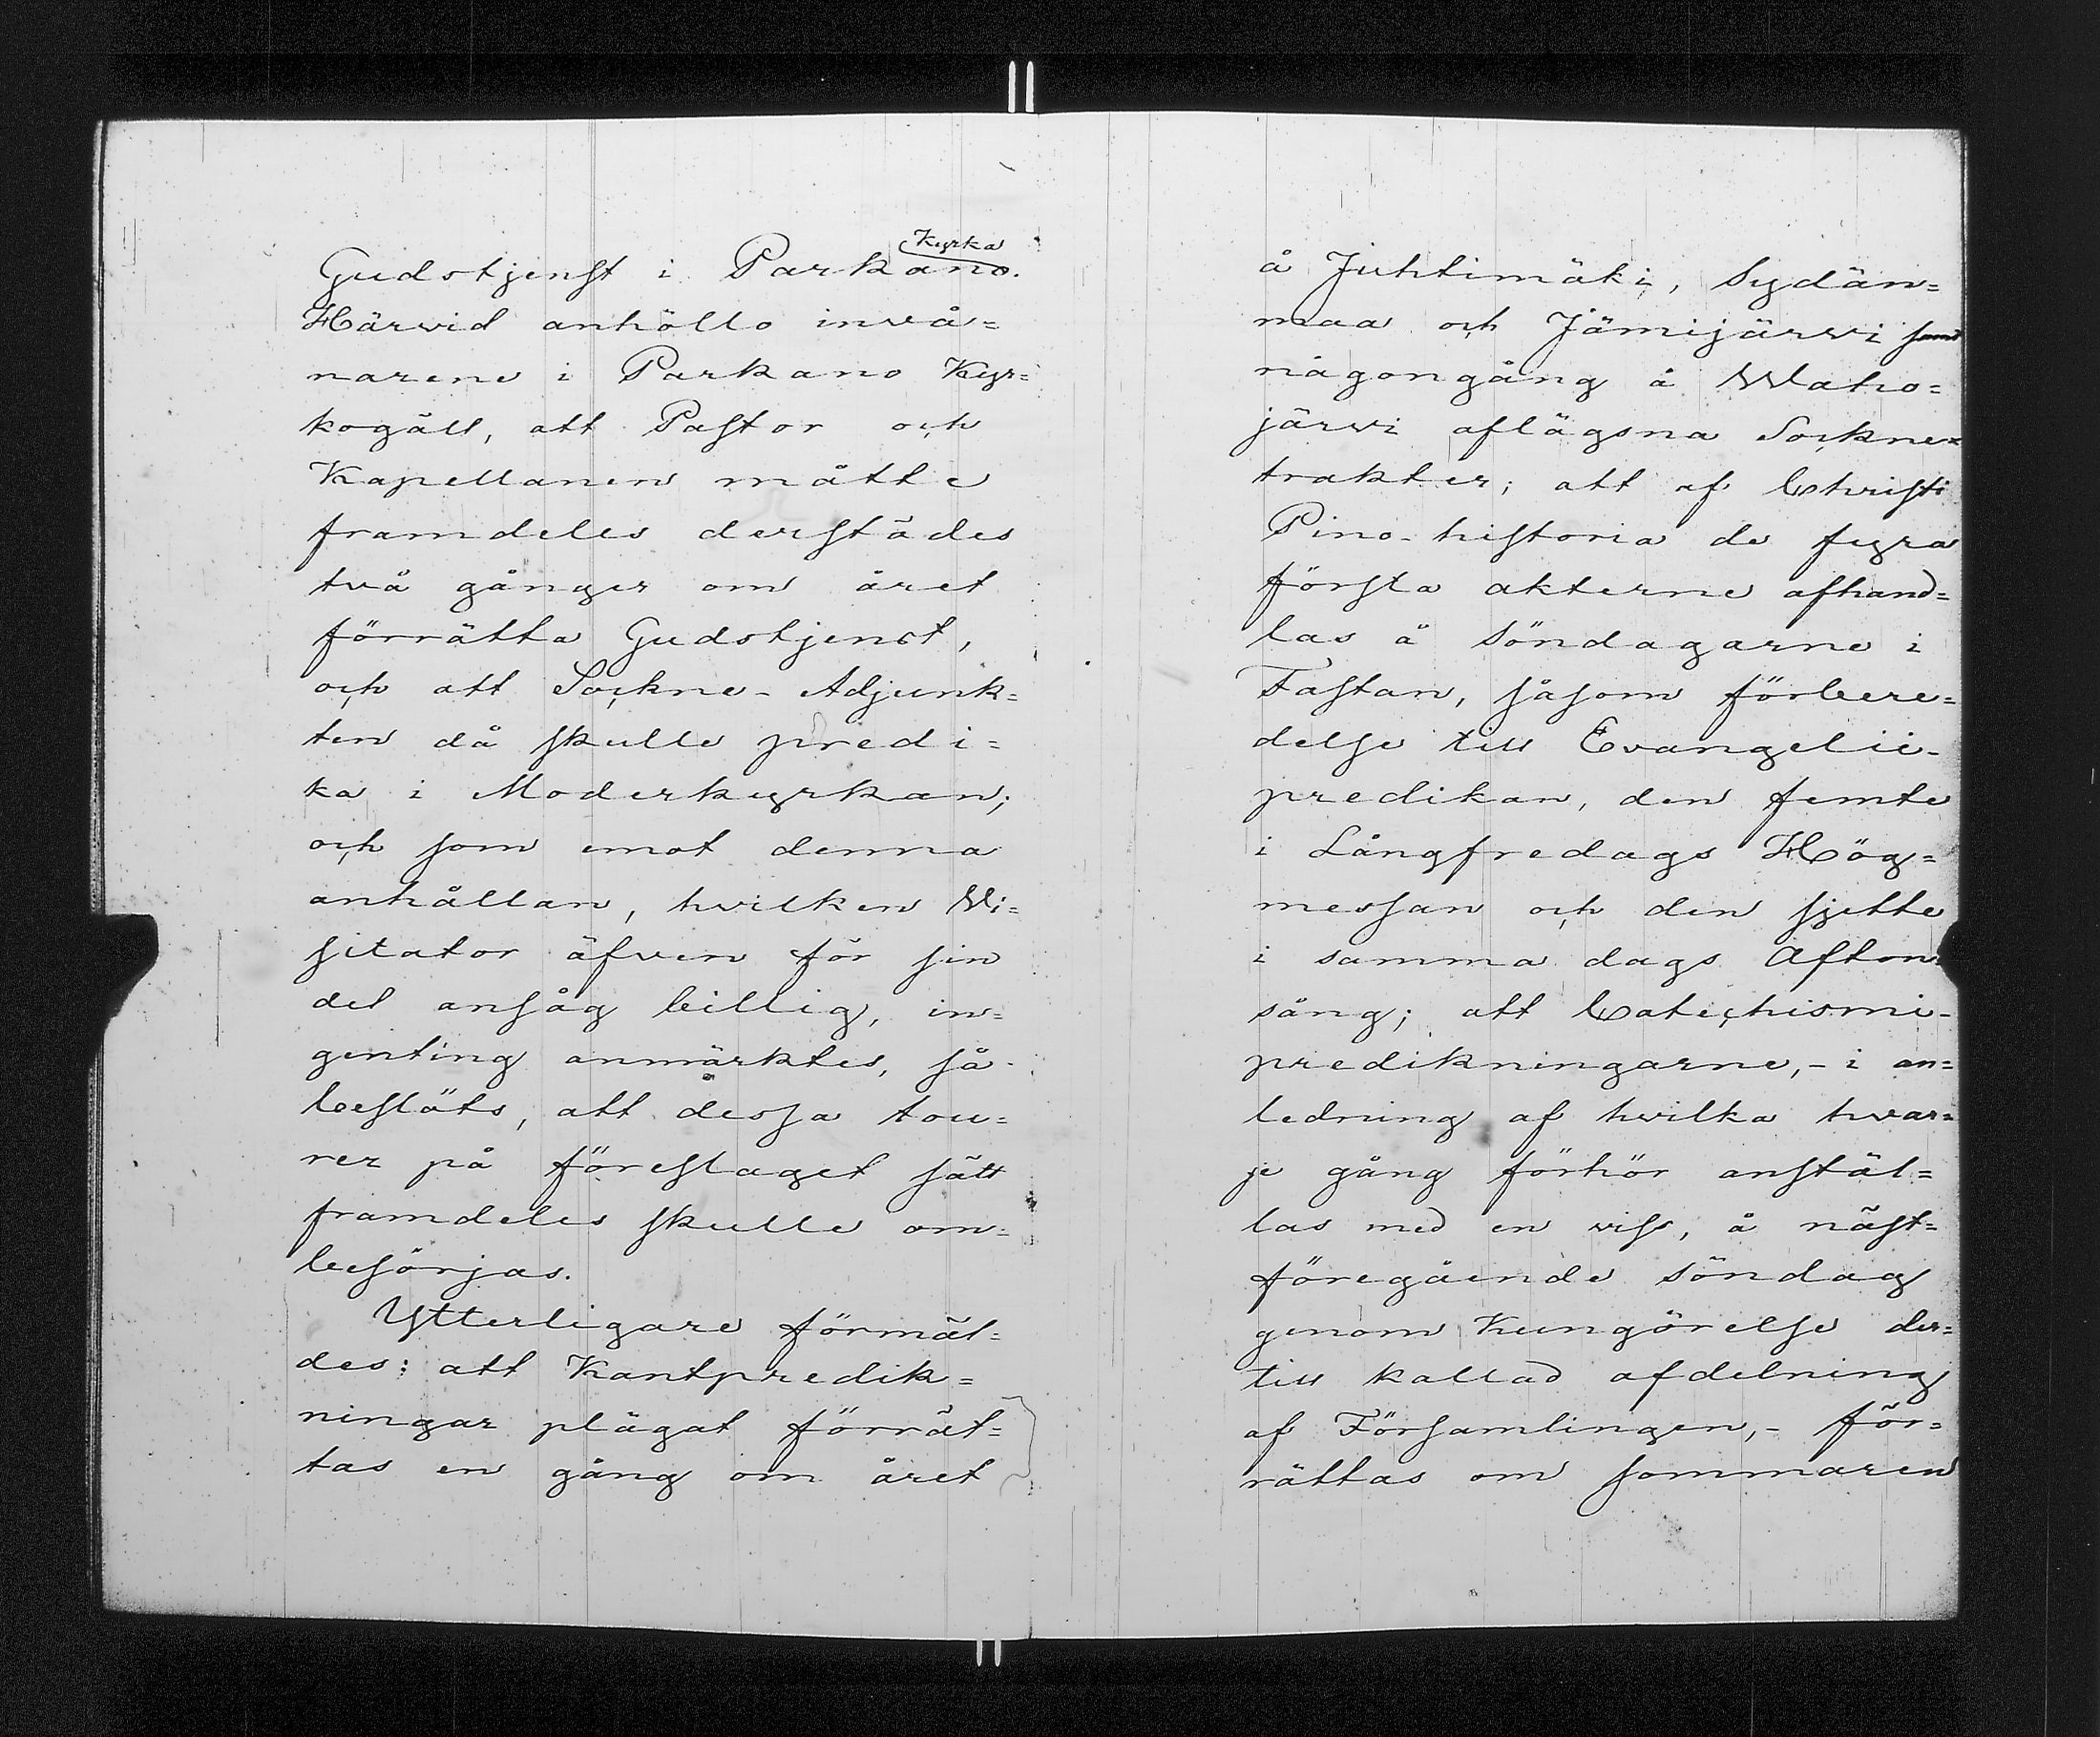 Kyrka
Gudstjenst i Parkano.
Härvid anhöllo invå=
narene i Parkano Kyr=
kogäll, att Pastor och
Kapellanen måtte
framdeles derstädes
två gånger om året
förrätta Gudstjenst,
och att Sockne-Adjunk=
ten då skulle predi=
ka i Moderkyrkan;
och som emot denna
anhållan, hvilken Vi=
sitator äfven för sin
del ansåg billig, in=
genting anmärktes, så
beslöts, att dessa tou=
rer på föreslaget sätt
framdeles skulle om=
besörjas.
Ytterligare förmäl=
des: att Kantpredik=
ningar plägat förrät=
tas en gång om året
å Juhtimäki, Sydän=
maa och Jämijärvi samt
någongång å Waho=
järvi aflägsna Sockne=
trakter; att af Christi
Pino-historia de fyra
första akterne afhand=
las å Söndagarne i
Fastan, såsom förbere=
delse till Evangelii-
predikan, den femte
i Långfredags Hög=
messan och den sjette
i samma dags Afton=
sång; att Catechismi-
predikningarne,- i an=
ledning af hvilka hvar=
je gång förhör anstäl=
las med en viss, å näst=
föregående Söndag
genom Kungörelse der=
till kallad afdelning
af Församlingen,- för=
rättas om sommaren